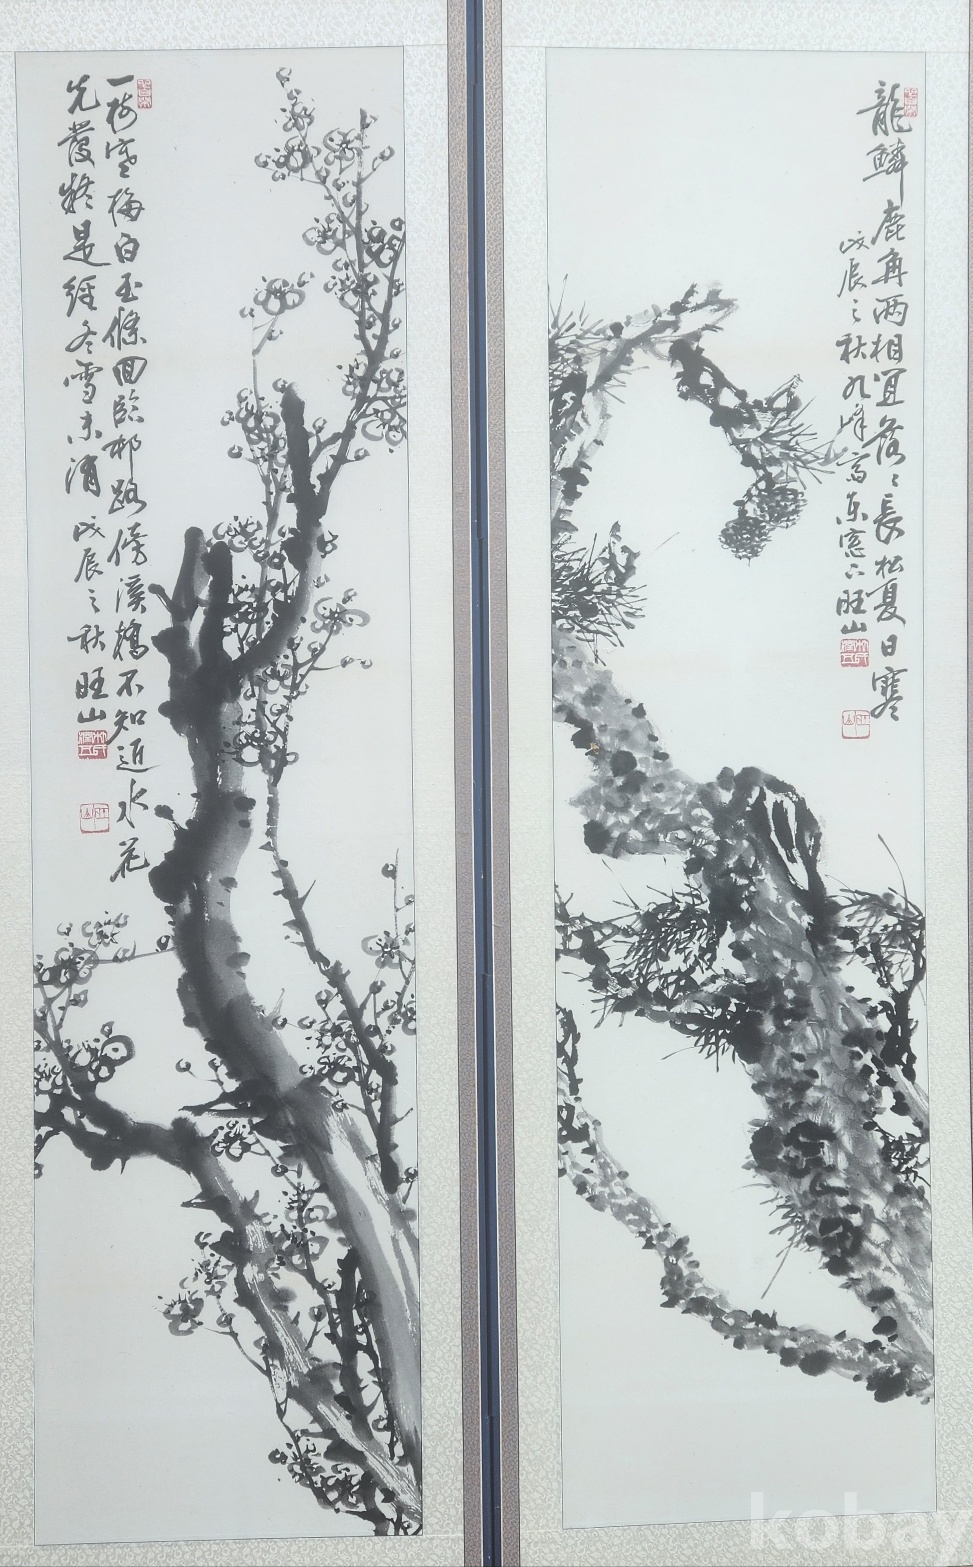 龍鱗鹿角兩相宜落々長松夏日寒
戊辰之秋九峰寫东窓下旺山
一樹寒梅白玉條回臨邨路傍溪橋不知近水花
先發疑是經冬雪未消 戊辰之秋旺山
kobay